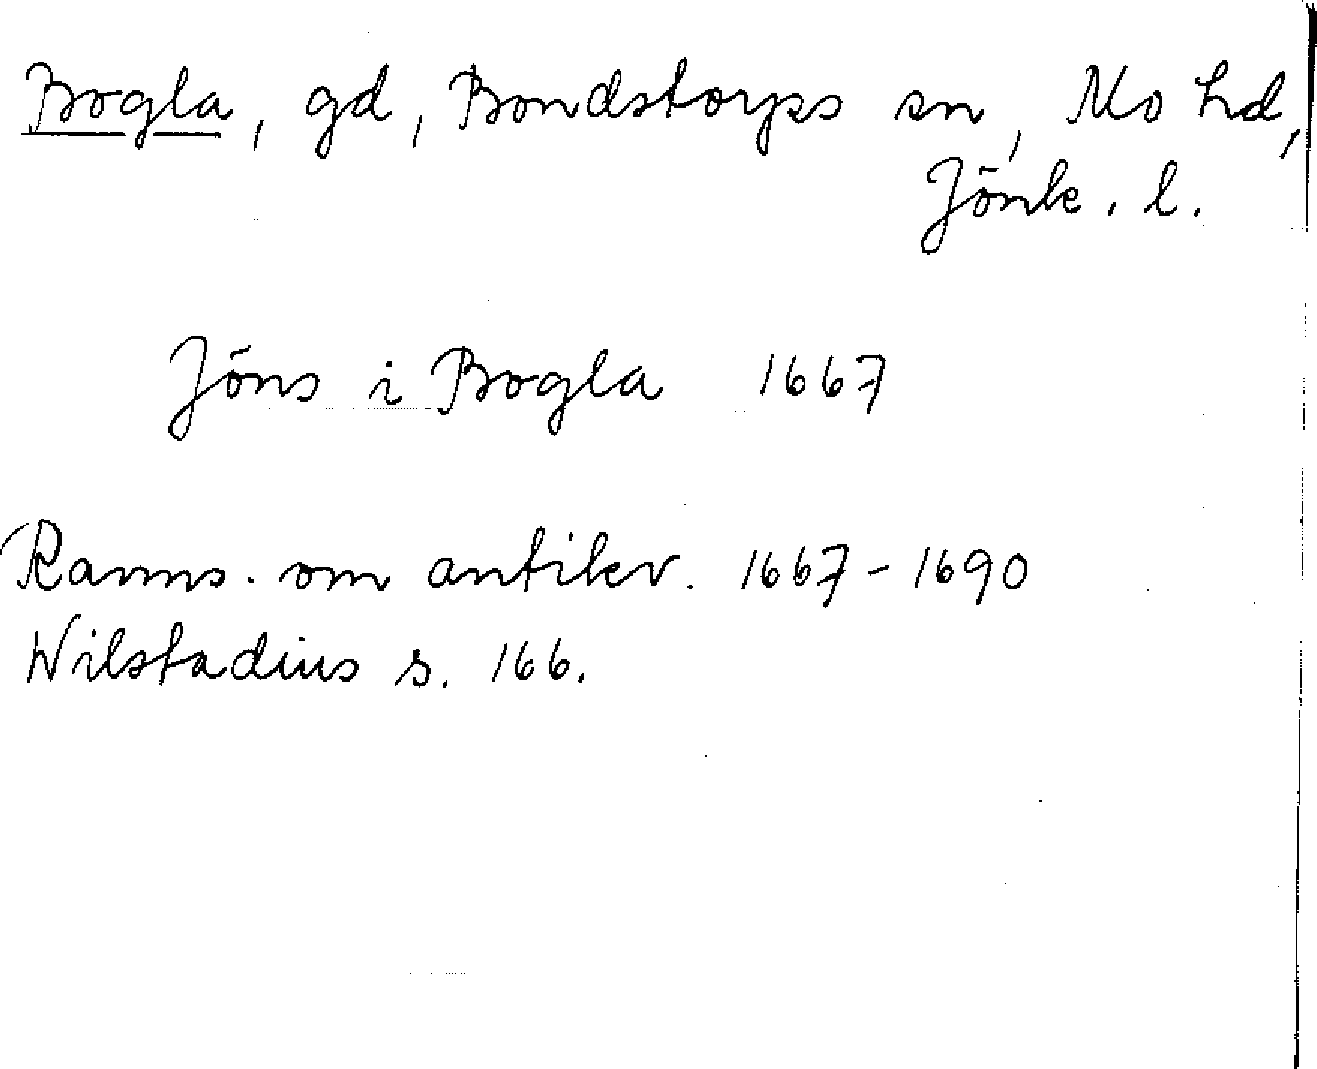 Bogla, gd, Bondstorps sn, Mo hd,
Jönk. l.
Jöns i Bogla 1667
Ranns. om antikv. 1667-1690
Wilstadius s. 166.